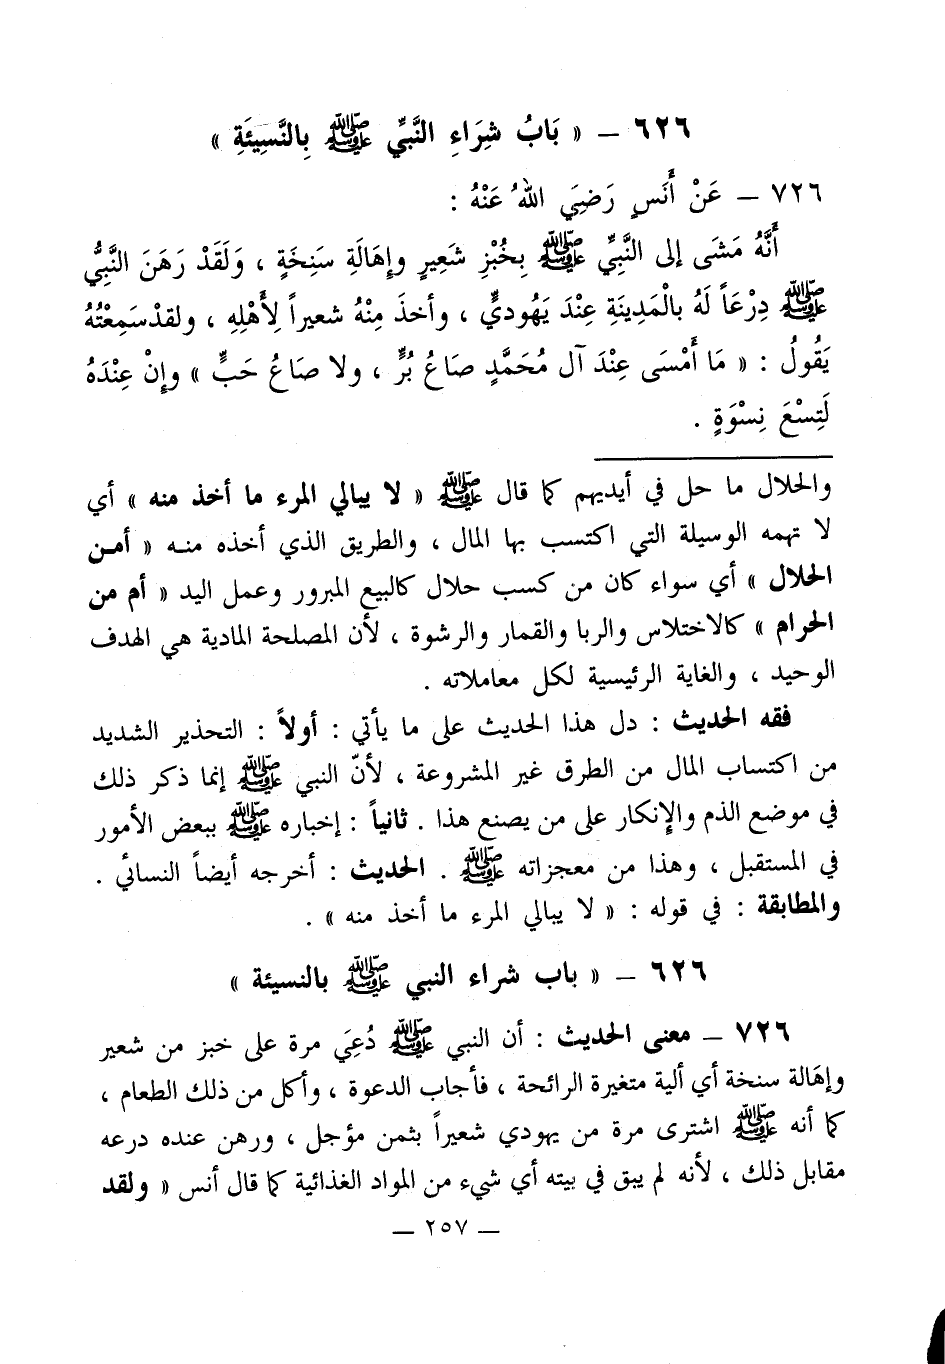 ٦٢٦ – « بَابُ شِرَاءِ النَّبِيِّ ﷺ بِالنَّسِيئَةِ »
٧٢٦ – عَنْ أَنَسٍ رَضِيَ اللهُ عَنْهُ :
أَنَّهُ مَشَى إلى النَّبِيِّ ﷺ بِخُبْزِ شَعِيرٍ وإِهَالَةٍ سَنِخَةٍ ، وَلَقَدْ رَهَنَ النَّبِيُّ
ﷺ دِرْعَاً لَهُ بالْمَدِينَةِ عِنْدَ يَهُوديٍّ ، وأخذَ مِنْهُ شعيراً لِأَهْلِهِ ، ولقدْ سَمِعْتُهُ
يَقُولُ : « مَا أَمْسَى عِنْدَ آلِ مُحَمَّدٍ صَاعُ بُرٍّ ، ولا صَاعُ حَبٍّ » وإنْ عِنْدَهُ
لَتِسْعَ نِسْوَةٍ .
والحلال ما حل في أيديهم كما قال ﷺ « لا يبالي المرء ما أخذ منه » أي
لا تهمه الوسيلة التي اكتسب بها المال ، والطريق الذي أخذه منه « أمن
الحلال » أي سواء كان من كسب حلال كالبيع المبرور وعمل اليد « أم من
الحرام » كالاختلاس والربا والقمار والرشوة ، لأن المصلحة المادية هي الهدف
الوحيد ، والغاية الرئيسية لكل معاملاته .
فقه الحديث : دل هذا الحديث على ما يأتي : أولاً : التحذير الشديد
من اكتساب المال من الطرق غير المشروعة ، لأنّ النبي ﷺ إنما ذكر ذلك
في موضع الذم والإنكار على من يصنع هذا . ثانياً : إخباره ﷺ ببعض الأمور
في المستقبل ، وهذا من معجزاته ﷺ . الحديث : أخرجه أيضاً النسائي .
والمطابقة : في قوله : « لا يبالي المرء ما أخذ منه » .
٦٢٦ – « باب شراء النبي ﷺ بالنسيئة »
٧٢٦ – معنى الحديث : أن النبي ﷺ دُعِيَ مرة على خبز من شعير
وإهَالة سنخة أي ألية متغيرة الرائحة ، فأجاب الدعوة ، وأكل من ذلك الطعام ،
كما أنه ﷺ اشترى مرة من يهودي شعيراً بثمن مؤجل ، ورهن عنده درعه
مقابل ذلك ، لأنه لم يبق في بيته أي شيء من المواد الغذائية كما قال أنس « ولقد
— ٢٥٧ —